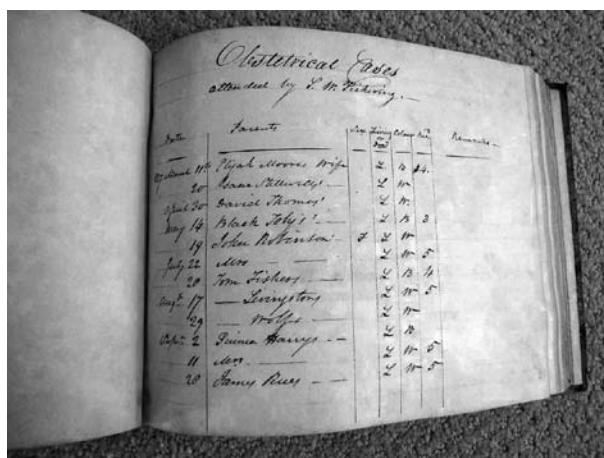 Obstetrical Cases
attended by S. W.
Date Parents Sex Living or Dead Colour Remarks
March 11th Elijah Moores Wife L B 24
20 Isaac L W
April 30 David Thomas' L W
May 14 Black Toby's L B 3
19 John Robinson F L W
July 22 Mrs L W 5
28 Tom Fishers L B 4
Augt. 17 Livingstons L W 5
29 Wolfes L W
Sept. 2 Harrys L B
11 Mrs L W 5
28 James L W 5